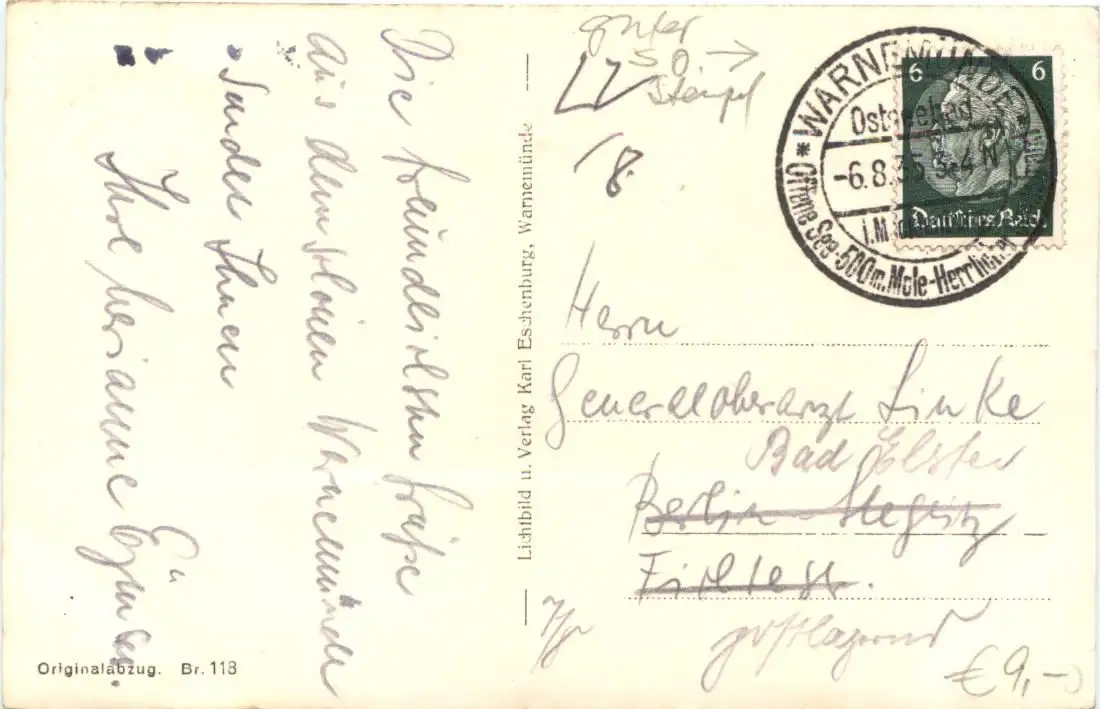 Die freundlichsten Grüße
aus dem schönen Warnemünde
senden Ihnen
Ihre
Originalabzug. Br. 118
Lichtbild u. Verlag Karl Eschenburg, Warnemünde
guter
so →
Stempel
18
* WARNEMÜNDE
Ostseebad
-6.8.35 3-4 N
i.M
Offene See-500m. Mole-Herrlicher
6 6
Deutsches Reich
Herrn
Generaloberarzt Linke
Bad Elster
Berlin-Steglitz
Fichtestr.
postlagernd
€ 9,-